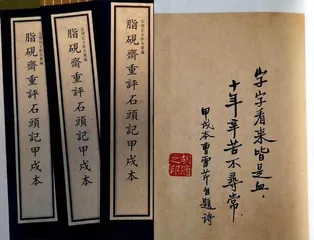 脂硯齋重評石頭記甲戌本
脂硯齋重評石頭記甲戌本
脂硯齋重評石頭記甲戌本
字字看来皆是血
十年辛苦不尋常
甲戌本曹雪芹自題詩